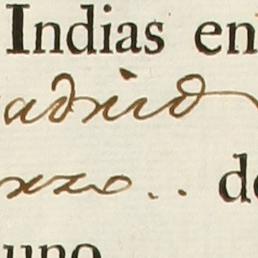 Indias en
adrid
rzo.. de
uno